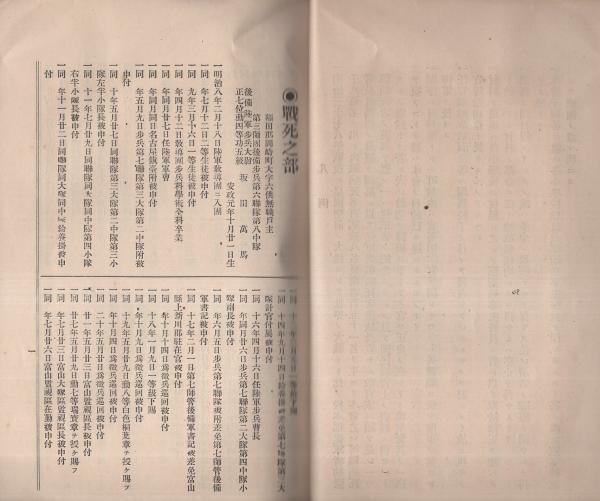 ●戰死之部
額田郡岡崎町大字六供無職戸主
第三師團後備步兵第六聯隊第八中隊
後備陸軍步兵大尉
正七位勳四等功五級
坂田萬馬
安政元年十月廿一日生
一明治八年二月十八日陸軍敎導團ニ入團
一同 年七月十二日二等生徒被申付
一同 九年三月十六日一等生徒被申付
一同 年四月十二日敎導團步兵科學術全科卒業
一同 年同月廿七日任陸軍軍曹
一同 年同月同日名古屋鎭臺附被申付
一同 年五月九日步兵第七聯隊第三大隊第二中隊附被
申付
一同 十年五月廿七日同聯隊第三大隊第二中隊第三小
隊左半小隊長被申付
一同 十一年七月廿九日同聯隊同大隊同中隊第四小隊
右半小隊長被申付
一同 年十一月廿二日同聯隊同大隊同中隊給養掛被申
付
隊計官付屬被申付
一同 十六年四月十六日任陸軍步兵曹長
一同 年同月廿六日步兵第七聯隊第二大隊第四中隊小
隊副長被申付
一同 年六月五日步兵第七聯隊被附差免第七師管後備
軍書記被申付
一同 十七年二月一日第七師管後備軍書記被差免富山
縣上新川郡駐在官被申付
一同 年十月十四日徵兵巡回被申付
一同 十八年一月九日一等給下賜
一同 年十月九日爲徵兵巡回被申付
一同 十九年五月廿九日勳八等白色桐葉章ヲ授ケ賜フ
一同 年十月四日爲徵兵巡回被申付
一同 二十年五月廿日爲徵兵巡回被申付
一同 廿一年五月廿三日富山監視區長被申付
一同 廿七年五月廿九日勳七等瑞寶章ヲ授ケ賜フ
一同 年七月廿三日富山大隊區監視區長被申付
一同 年七月廿六日富山監視區在勤被申付
一